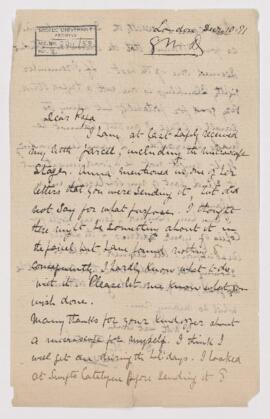 McGILL UNIVERSITY
ARCHIVES
ACC. NO.
REF.
London Dec. 10. 91
Dear Papa
I have at last safely received
my both parcel, including the microscope
stage. Anna mentioned in one of her
letters that you were sending it but did
not say for what purpose. I thought
there might be something about it in
the parcel but have found nothing
consequently I hardly know what to do
with it. Please let me know what you
wish done.
Many thanks for your kind offer about
a microscope for myself. I think I
will get one during the holidays. I looked
at Swifts Catalogue before sending it